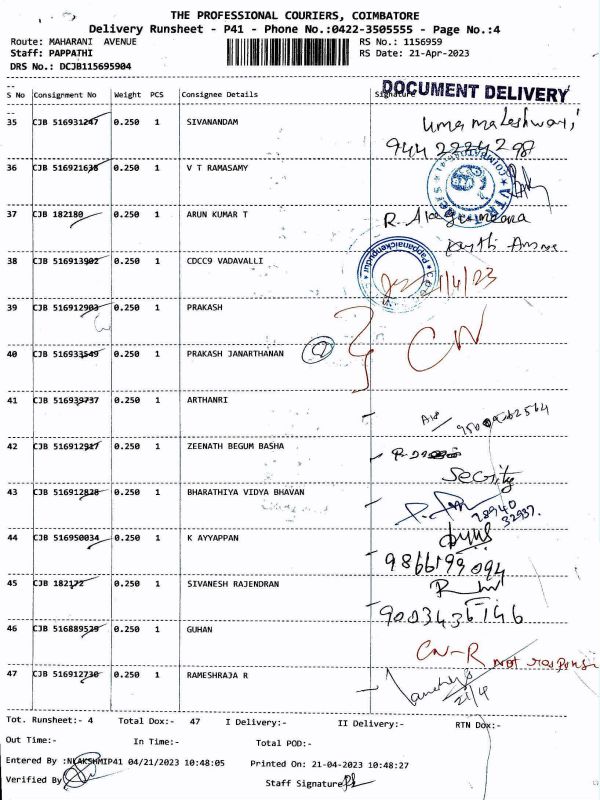 THE PROFESSIONAL COURIERS, COIMBATORE
Delivery Runsheet - P41 - Phone No.:0422-3505555 - Page No.:4
Route: MAHARANI AVENUE RS No.: 1156959
Staff: PAPPATHI RS Date: 21-Apr-2023
DRS No.: DCJB115695904
DOCUMENT DELIVERY
S No Consignment No Weight PCS Consignee Details Signature
35 CJB 516931247 0.250 1 SIVANANDAM
9442224298
36 CJB 516921638 0.250 1 V T RAMASAMY
37 CJB 182180 0.250 1 ARUN KUMAR T
38 CJB 516913902 0.250 1 CDCC9 VADAVALLI
39 CJB 516912903 0.250 1 PRAKASH
CN
40 CJB 516933549 0.250 1 PRAKASH JANARTHANAN
41 CJB 516939737 0.250 1 ARTHANRI
42 CJB 516912917 0.250 1 ZEENATH BEGUM BASHA
43 CJB 516912828 0.250 1 BHARATHIYA VIDYA BHAVAN
78940
32937.
44 CJB 516950034 0.250 1 K AYYAPPAN
9866199094
45 CJB 182172 0.250 1 SIVANESH RAJENDRAN
9003436146
46 CJB 516889529 0.250 1 GUHAN
CN-R
47 CJB 516912730 0.250 1 RAMESHRAJA R
21/4
Tot. Runsheet:- 4 Total Dox:- 47 I Delivery:- II Delivery:- RTN Dox:-
Out Time:- In Time:- Total POD:-
Entered By :NLAKSHMIP41 04/21/2023 10:48:05 Printed On: 21-04-2023 10:48:27
Verified By Staff Signature